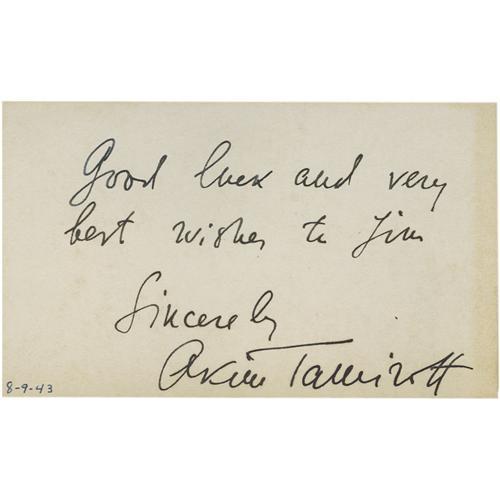 Good luck and very
best wishes to Jim
Sincerely
Akim Tamiroff
8-9-43